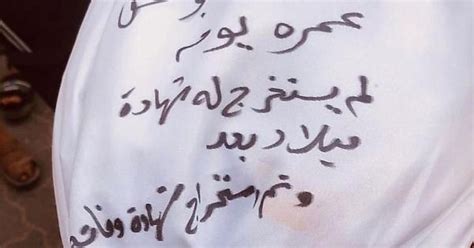 عمره يوم
لم يستخرج له شهادة
ميلاد بعد
وتم استخراج شهادة وفاته